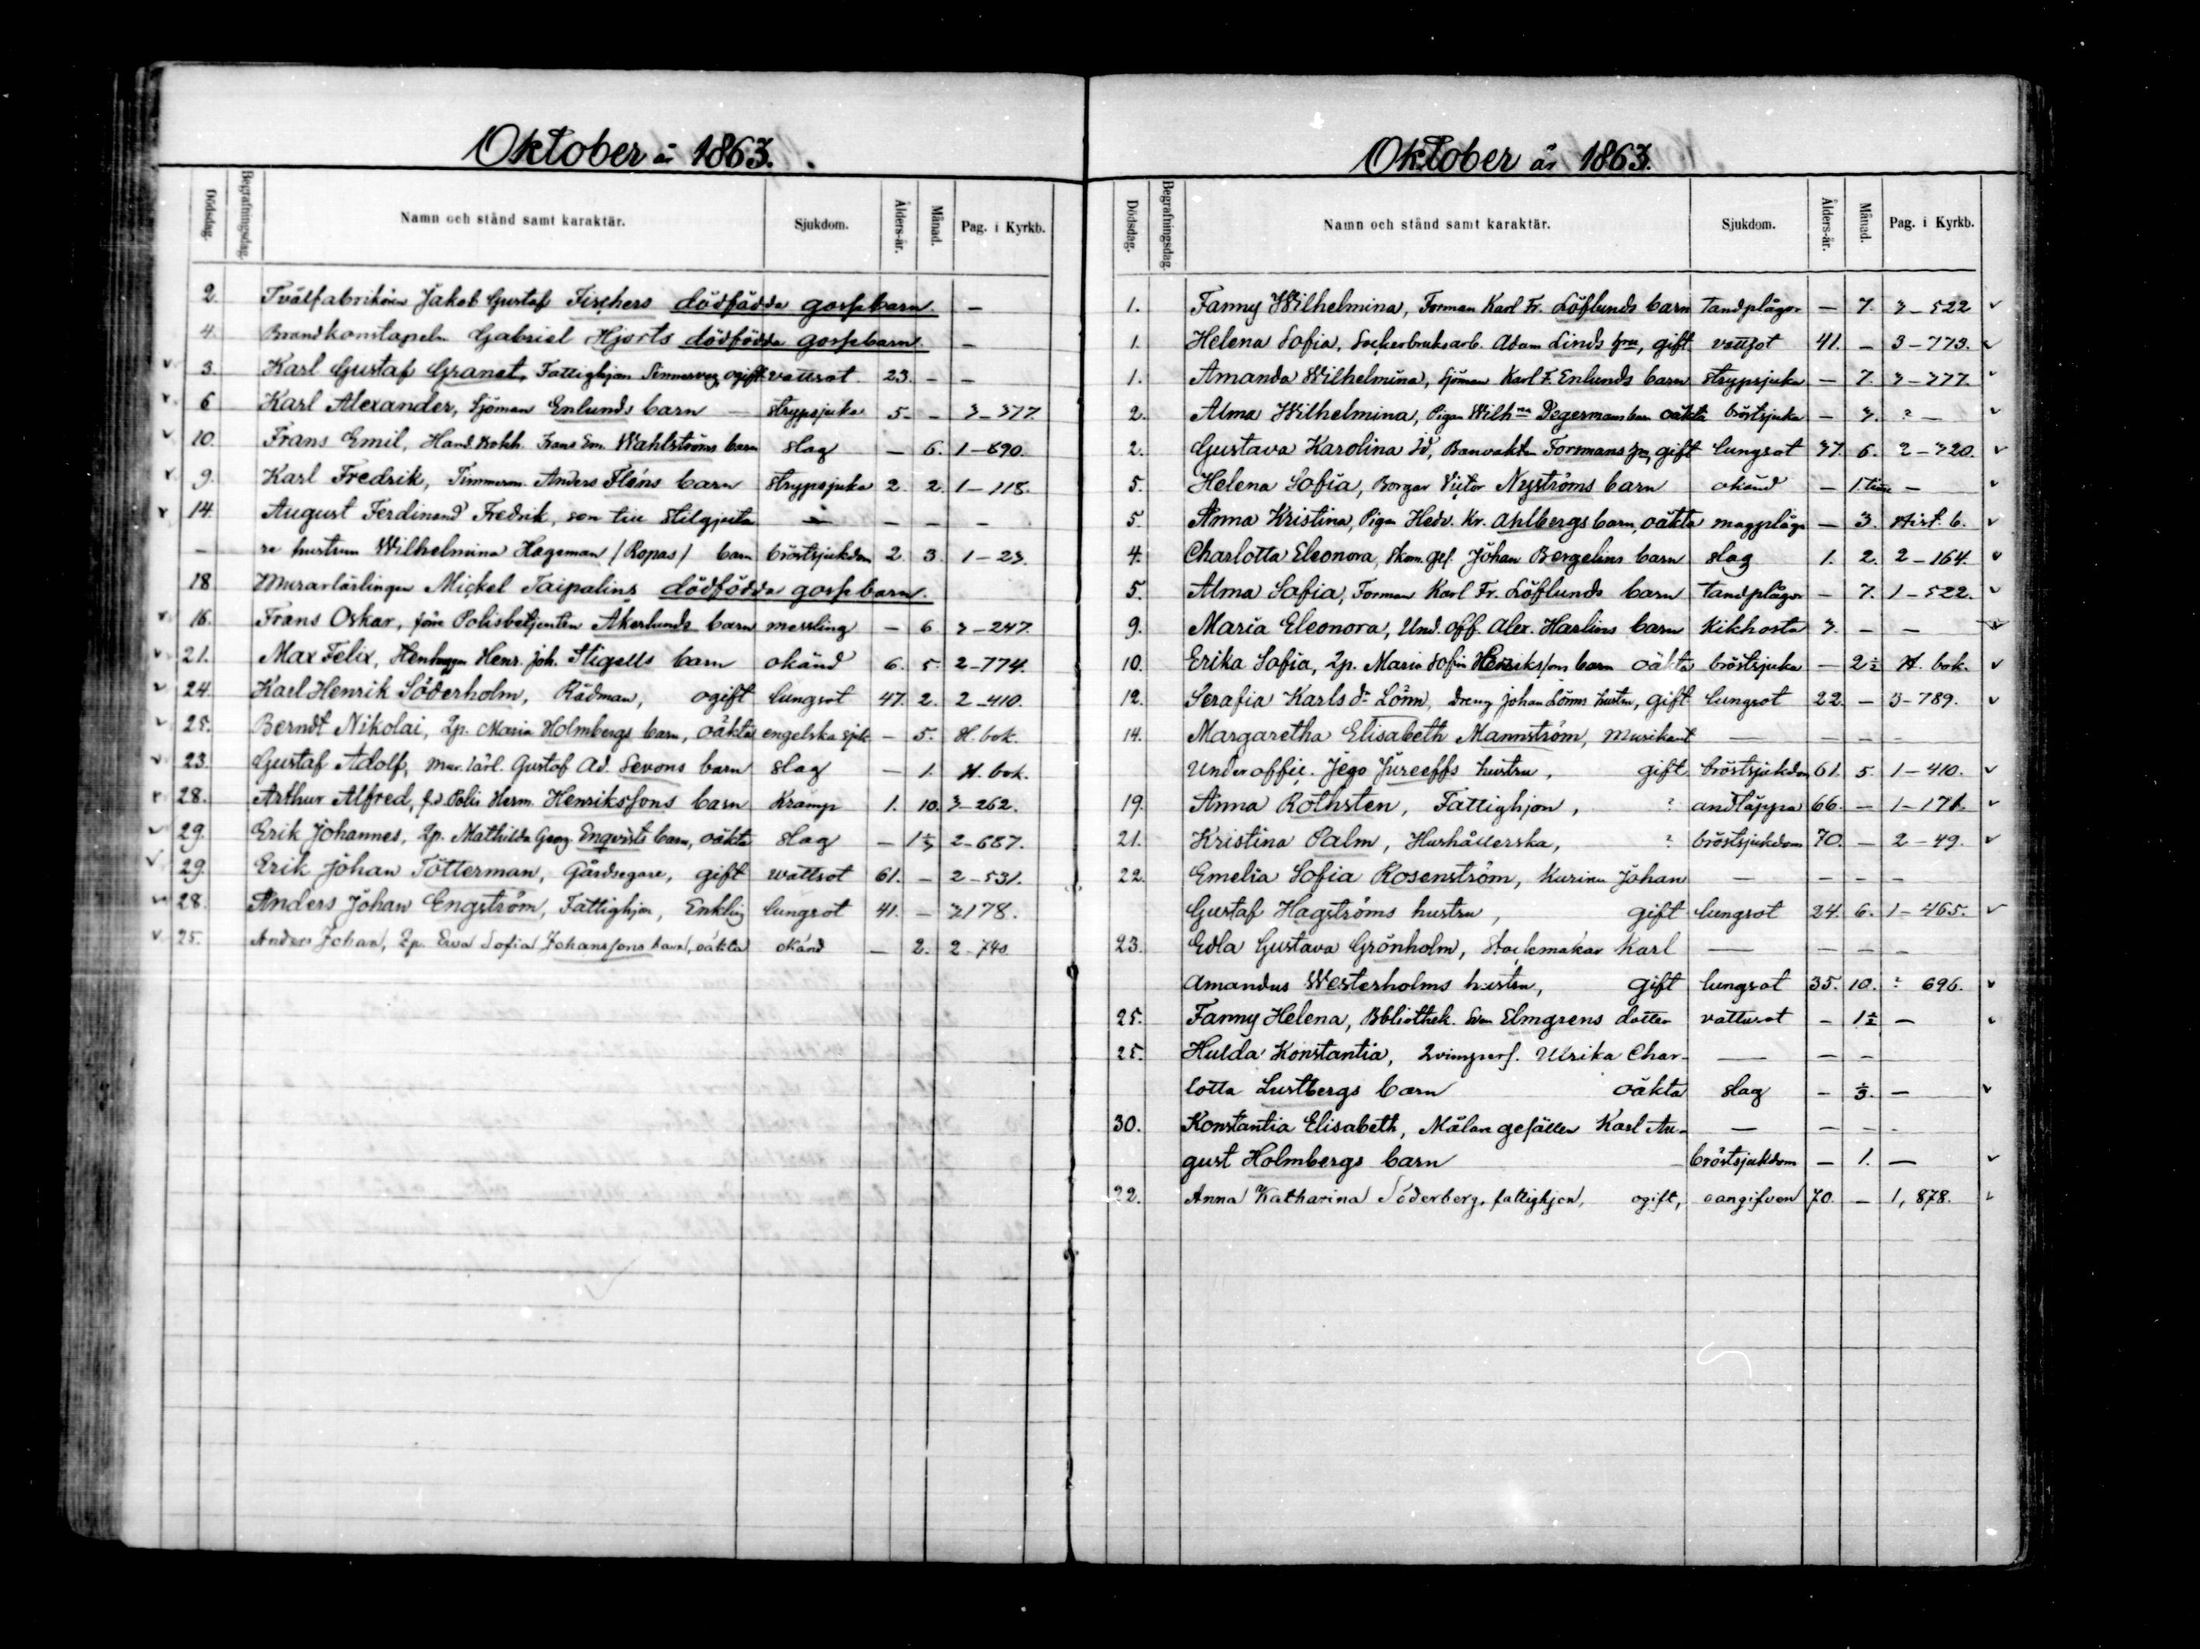 Oktober år 1863.
Dödsdag. Begrafningsdag. Namn och stånd samt karaktär. Sjukdom. Ålders-år. Månad. Pag. i Kyrkb.
2. Tvålfabrikören Jakob Gustaf Fischers dödfödda gossebarn. —
4. Brandkonstapeln Gabriel Hjorts dödfödda gossebarn. —
3. Karl Gustaf Granat, Fattighjon ogift vattsot 23. — —
6 Karl Alexander, Sjöman Enlunds barn — strypsjuka 5. — 3-377.
10. Frans Emil, Hand. Bokh. Frans Em. Wahlströms barn slag — 6. 1-690.
9. Karl Fredrik, Timmerm. Anders Fléns barn strypsjuka 2. 2. 1-118.
14. August Ferdinand Fredrik, son till stilgjuta — — — —
— re hustrun Wilhelmina Hageman /Ropas/ barn bröstsjukdom 2. 3. 1-23.
18 Murarlärlingen Mickel Taipalins dödfödda gossebarn.
16. Frans Oskar, förre Polisbetjenten Åkerlunds barn messling — 6. 3-247.
21. Max Felix, Henr. Joh. Stigells barn okänd 6. 5. 2-774.
24. Karl Henrik Söderholm, Rådman, ogift lungsot 47. 2. 2-410.
25. Berndt Nikolai, Qp. Maria Holmbergs barn, oäkta engelska sjuk. — 5. H. bok.
23. Gustaf Adolf, Mur. lärl. Gustaf Ad. Sevons barn slag — 1. H. bok.
28. Arthur Alfred, f.d. Polis Herm. Henrikssons barn Kramp 1. 10. 3-262.
29. Erik Johannes, Qp. Mathilda Georg. Enqvists barn, oäkta slag — 1 1/3 2-687.
29. Erik Johan Tötterman, Gårdsegare, gift wattsot 61. — 2-531.
28. Anders Johan Engström, Fattighjon, Enkling lungsot 41. — 3178.
25. Anders Johan, Qp. Ewa Sofia Johanssons barn, oäkta okänd — 2. 2-740
Oktober år 1863.
Dödsdag. Begrafningsdag. Namn och stånd samt karaktär. Sjukdom. Ålders-år. Månad. Pag. i Kyrkb.
1. Fanny Wilhelmina, Forman Karl Fr. Löflunds barn tandplågor — 7. 3-522
1. Helena Sofia, Sockerbruksarb. Adam Linds hru, gift vattsot 41. — 3-773.
1. Amanda Wilhelmina, Sjöman Karl F. Enlunds barn strypsjuka — 7. 3-377.
2. Alma Wilhelmina, Pigan Wilhna Degermans barn oäkta bröstsjuka — 3. ? —
2. Gustava Karolina Id, Banvakten Formans hru, gift lungsot 37. 6. 2-320.
5. Helena Sofia, Borgar Victor Nyströms barn okänd — 1. time —
5. Anna Kristina, Pigan Hedv. Kr. Ahlbergs barn, oäkta magplåga — 3. Hist. b.
4. Charlotta Eleonora, Skom. gef. Johan Bergelins barn slag 1. 2. 2-164.
5. Alma Sofia, Forman Karl Fr. Löflunds barn tandplågor — 7. 1-522.
9. Maria Eleonora, Und. Off. Alex. Harlins barn Kikhosta 3. — —
10. Erika Sofia, Qp. Maria Sofia Henrikssons barn oäkta bröstsjuka — 2 1/2 H. bok.
12. Serafia Karlsdr Lönn, Dreng Johan Lönns hustru, gift lungsot 22. — 3-789.
14. Margaretha Elisabeth Mannström, Musikant — — — —
Under offic. Jego Jureeffs hustru, gift bröstsjukdom 61. 5. 1-410.
19. Anna Rothsten, Fattighjon, ? andtäppa 66. — 1-171.
21. Kristina Palm, Hushållerska, ? bröstsjukdom 70. — 2-49.
22. Emelia Sofia Rosenström, Kusken Johan — — — —
Gustaf Hagströms hustru, gift lungsot 24. 6. 1-465.
23. Edla Gustava Grönholm, Stockmakar Karl — — — —
Amandus Westerholms hustru, gift lungsot 35. 10. ? 696.
25. Fanny Helena, Bbliothek. Sven Elmgrens dotter vattusot — 1 1/2 —
25. Hulda Konstantia, Qvinspers. Ulrika Char- — — —
lotta Lustbergs barn oäkta slag — 1/3. —
30. Konstantia Elisabeth, Målare gesällen Karl Au- — — — —
gust Holmbergs barn bröstsjukdom — 1. —
22. Anna Katharina Söderberg, fattighjon, ogift, oangifven 70. — 1, 878.